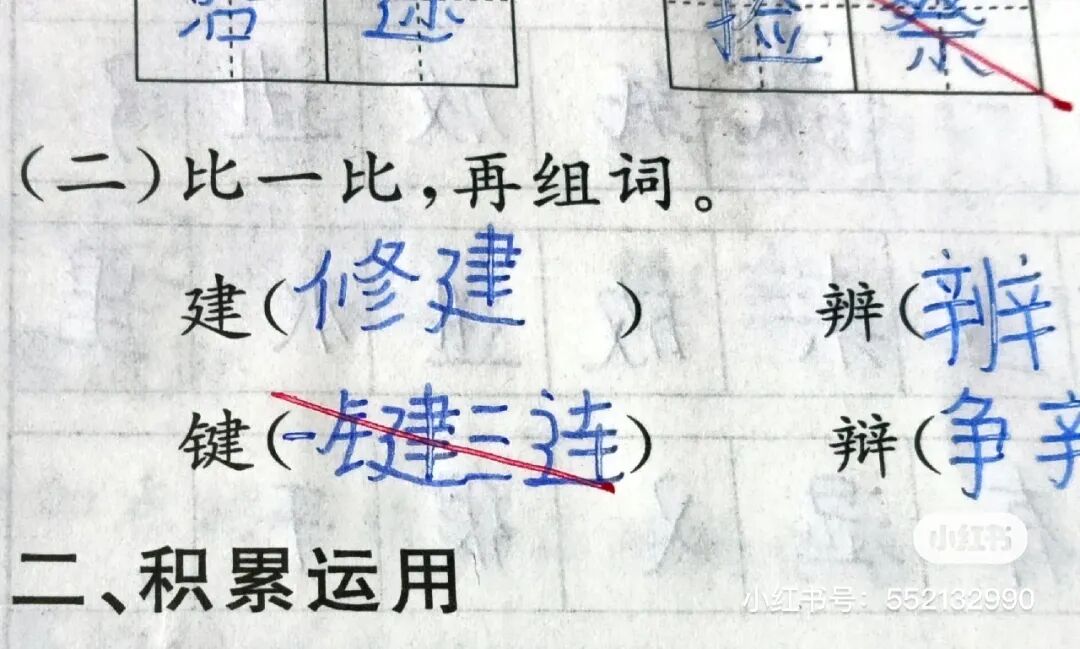 捡 察
(二)比一比,再组词。
建(修建) 辨(辨
键(一键三连) 辩(争
二、积累运用
小红书
小红书号：552132990